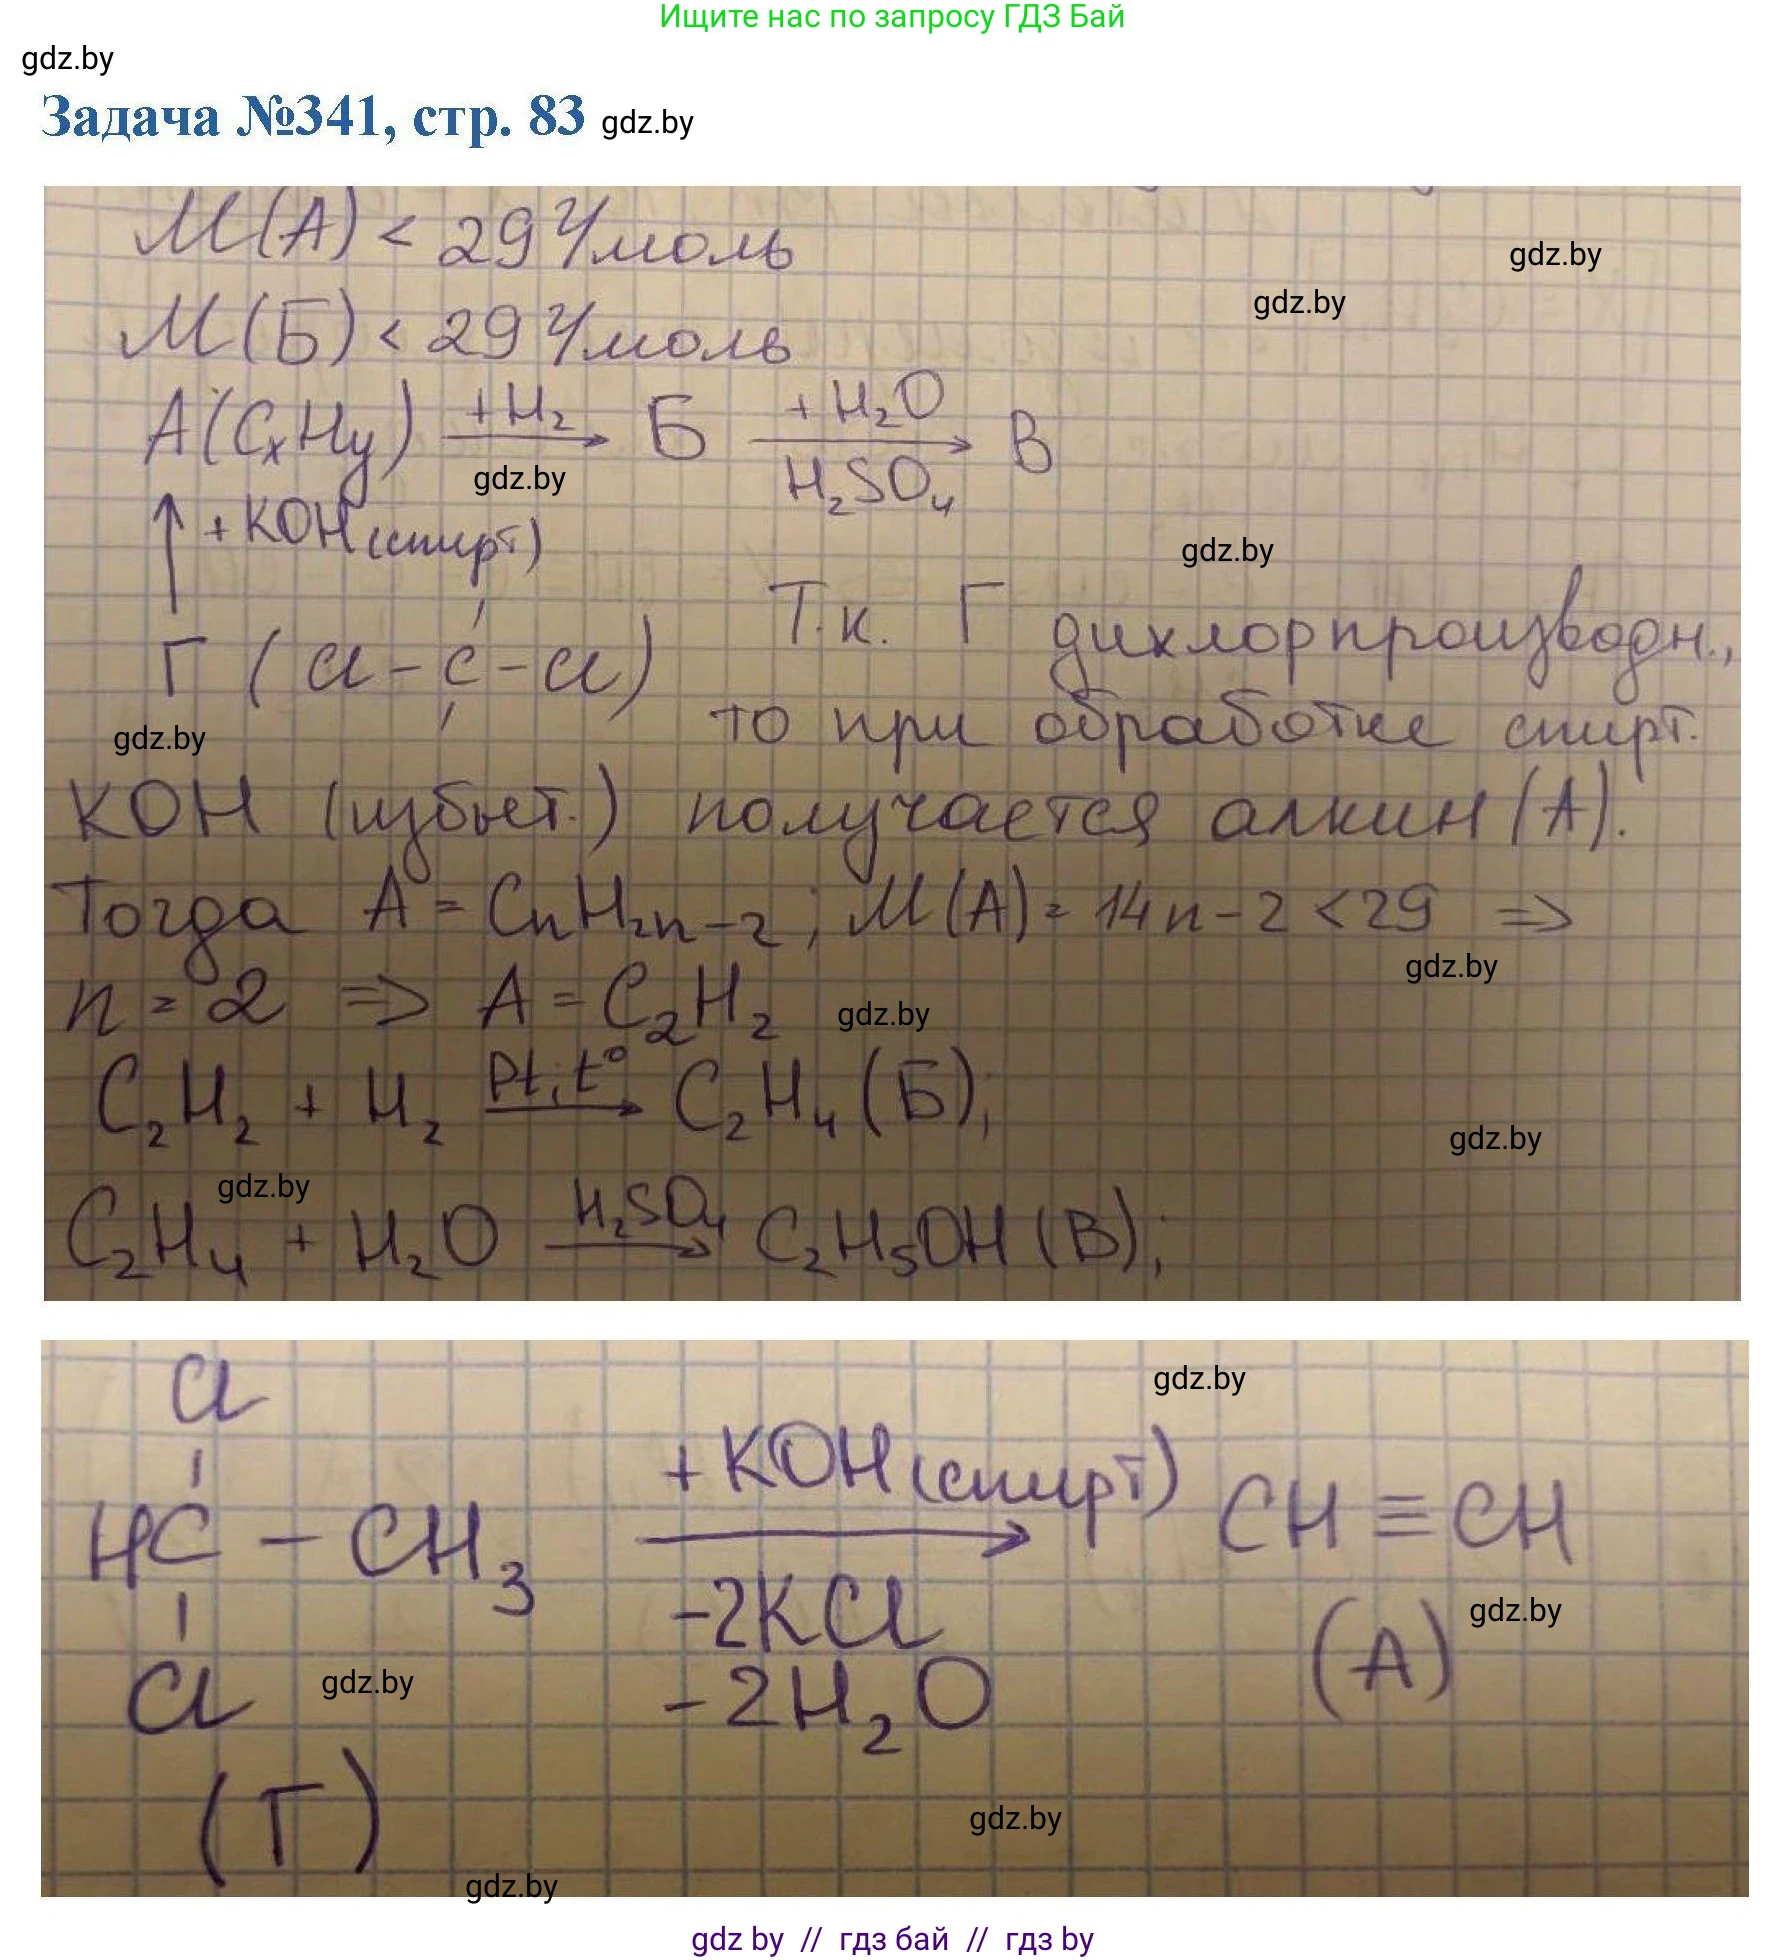 Ищите нас по запросу ГДЗ Бай
gdz.by
Задача №341, стр. 83 gdz.by
M(A) < 29 г/моль
gdz.by
gdz.by
M(Б) < 29 г/моль
A(CxHy) +H₂ → Б +H₂O → В
gdz.by H₂SO₄
↑ + KOH (спирт)
gdz.by
Г (Cl - C - Cl) Т.к. Г дихлорпроизводн.,
gdz.by то при обработке спирт.
KOH (избыт.) получается алкин (A).
Тогда A = CnH2n-2; M(A) = 14n - 2 < 29 ⇒
gdz.by
n = 2 ⇒ A = C₂H₂ gdz.by
C₂H₂ + H₂ Pt, t° → C₂H₄ (Б);
gdz.by
gdz.by
C₂H₄ + H₂O H₂SO₄ → C₂H₅OH (В);
Cl
gdz.by
+ KOH (спирт)
HC - CH₃ → CH ≡ CH
-2KCl
gdz.by
(A)
Cl gdz.by -2H₂O
(Г)
gdz.by
gdz.by
gdz by // гдз бай // гдз by